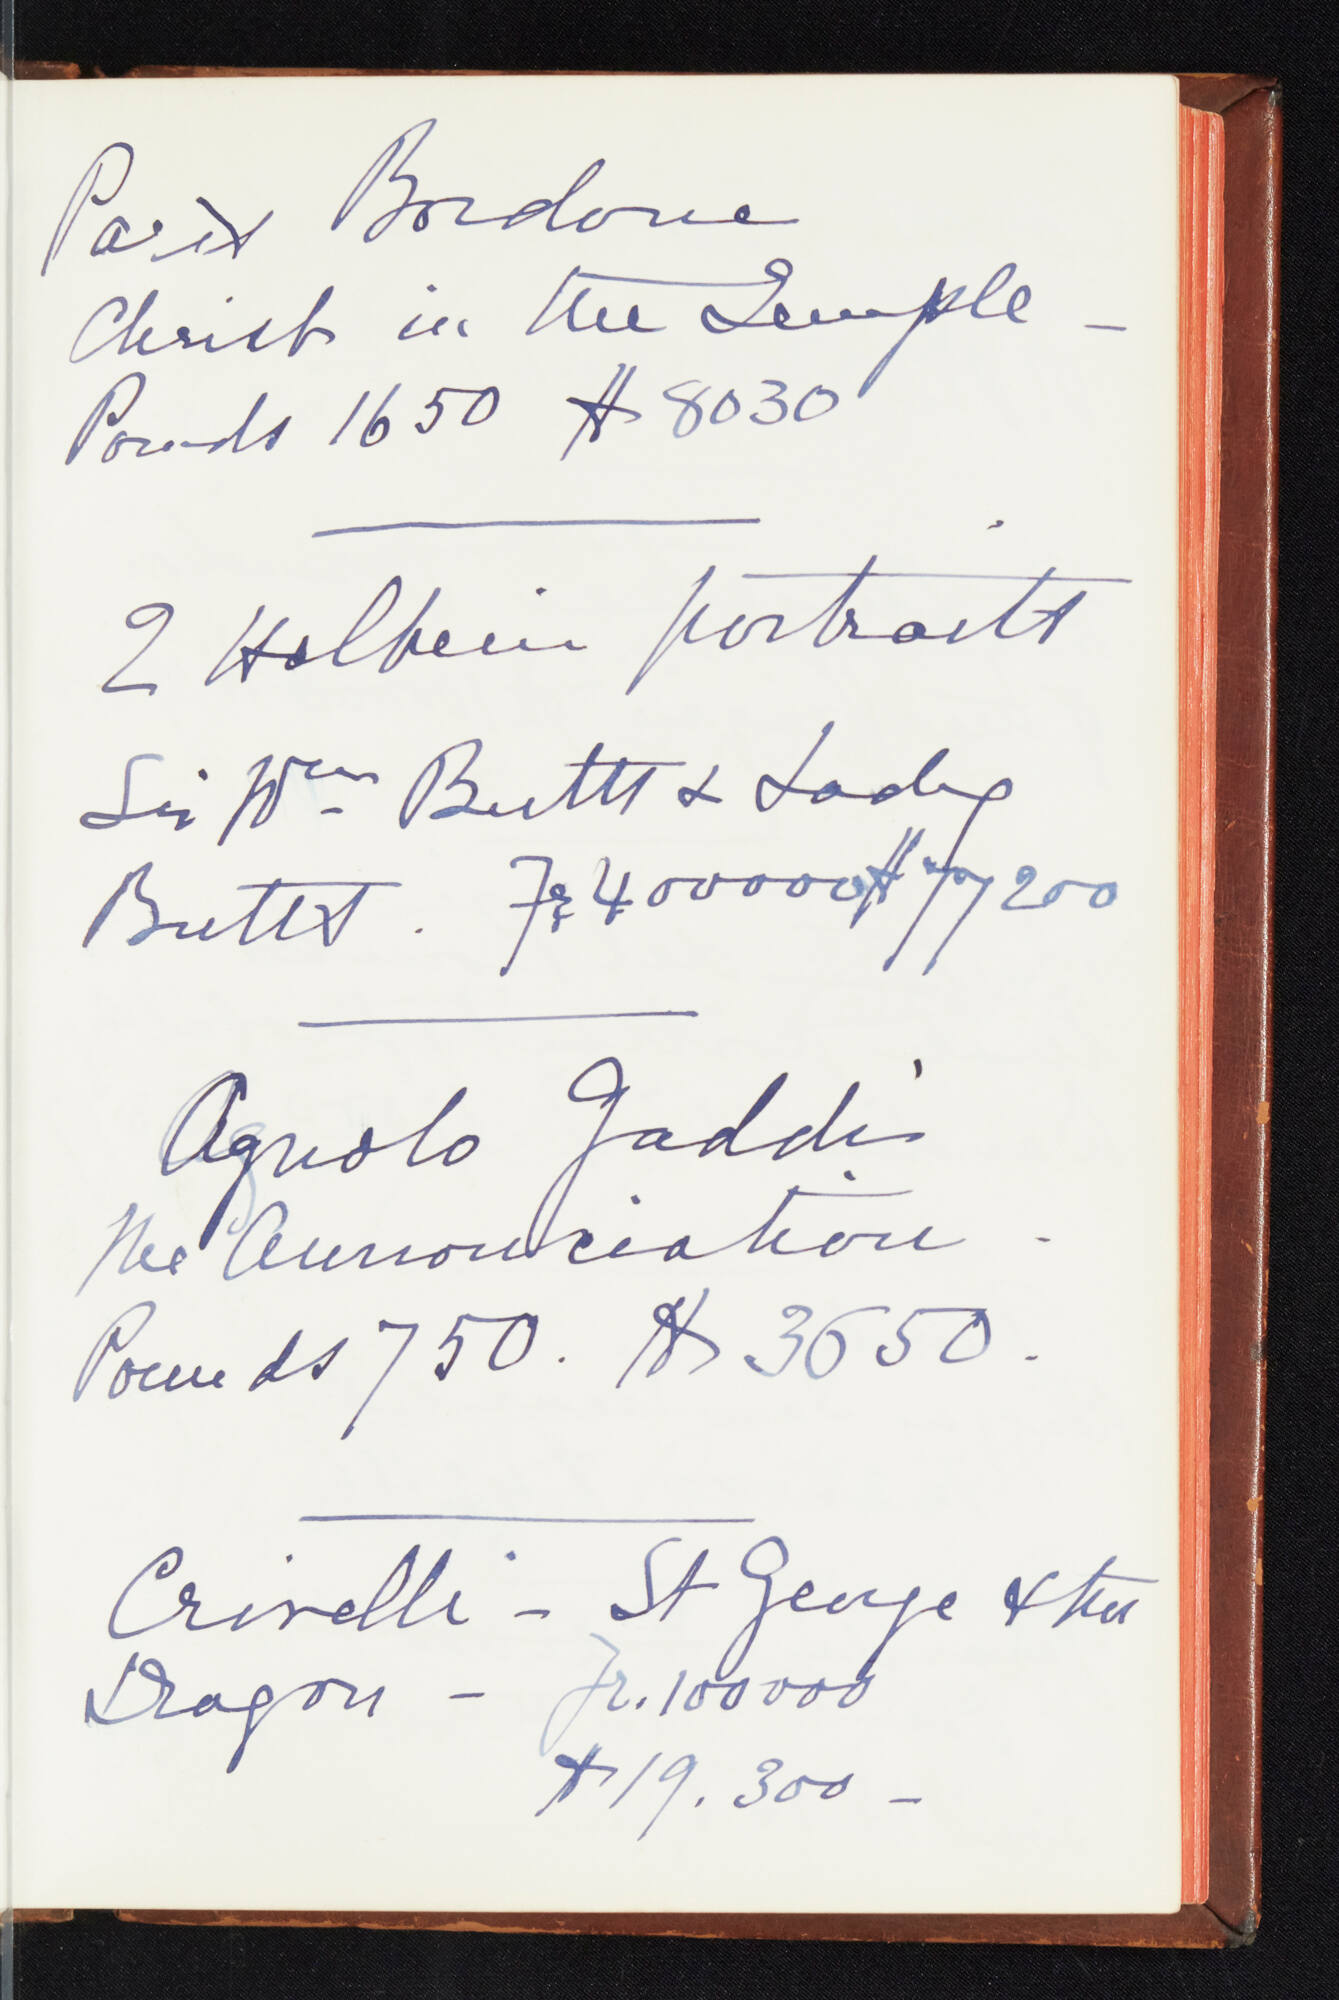 Paris Bordone
Christ in the Temple -
Pounds 1650 $ 8030
2 Holbein portraits
Sir Wm Butts & Lady
Butts. Fr 400000 $ 77200
Agnolo Gaddi
The Annonciation.
Pounds 750. $ 3650.
Crivelli - St George & the
Dragon - Fr. 100000
$ 19.300 -